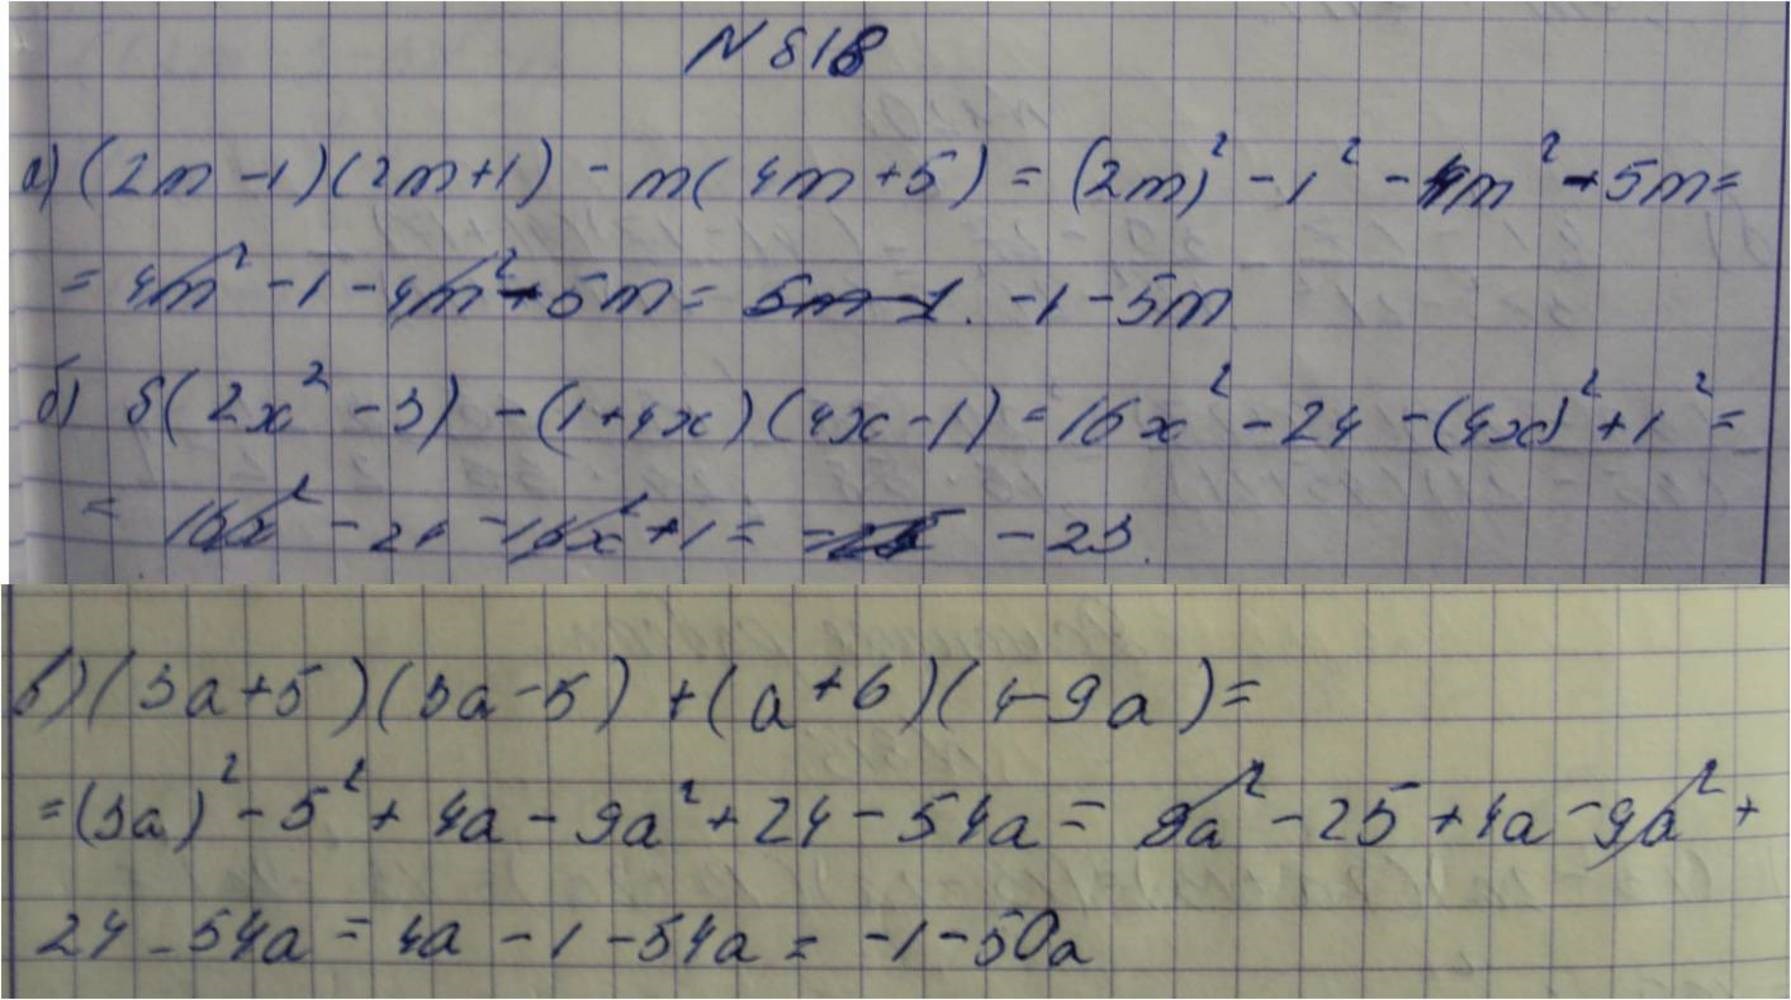 N 818
а) (2m - 1)(2m + 1) - m(4m + 5) = (2m)² - 1² - 4m² - 5m =
= 4m² - 1 - 4m² - 5m = 5m - 1. -1 - 5m
б) 8(2x² - 3) - (1 + 4x)(4x - 1) = 16x² - 24 - (4x)² + 1² =
= 16x² - 24 - 16x² + 1 = -25 - 23.
в) (3a + 5)(3a - 5) + (a + 6)(4 - 9a) =
= (3a)² - 5² + 4a - 9a² + 24 - 54a = 9a² - 25 + 4a - 9a² +
24 - 54a = 4a - 1 - 54a = -1 - 50a